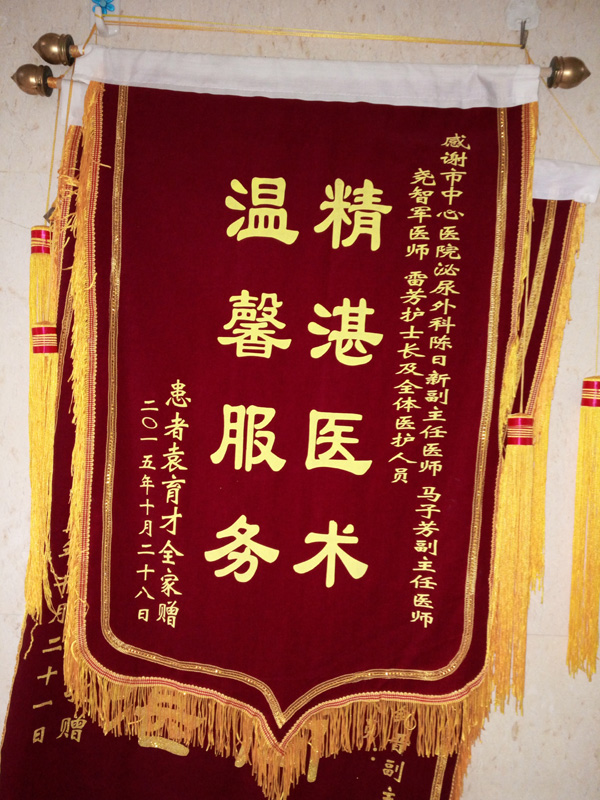 感谢市中心医院泌尿外科陈日新副主任医师 马子芳副主任医师
尧智军医师 雷芳护士长及全体医护人员
精湛医术
温馨服务
患者袁育才全家赠
二〇一五年十月二十八日
月二十一日
赠
副主